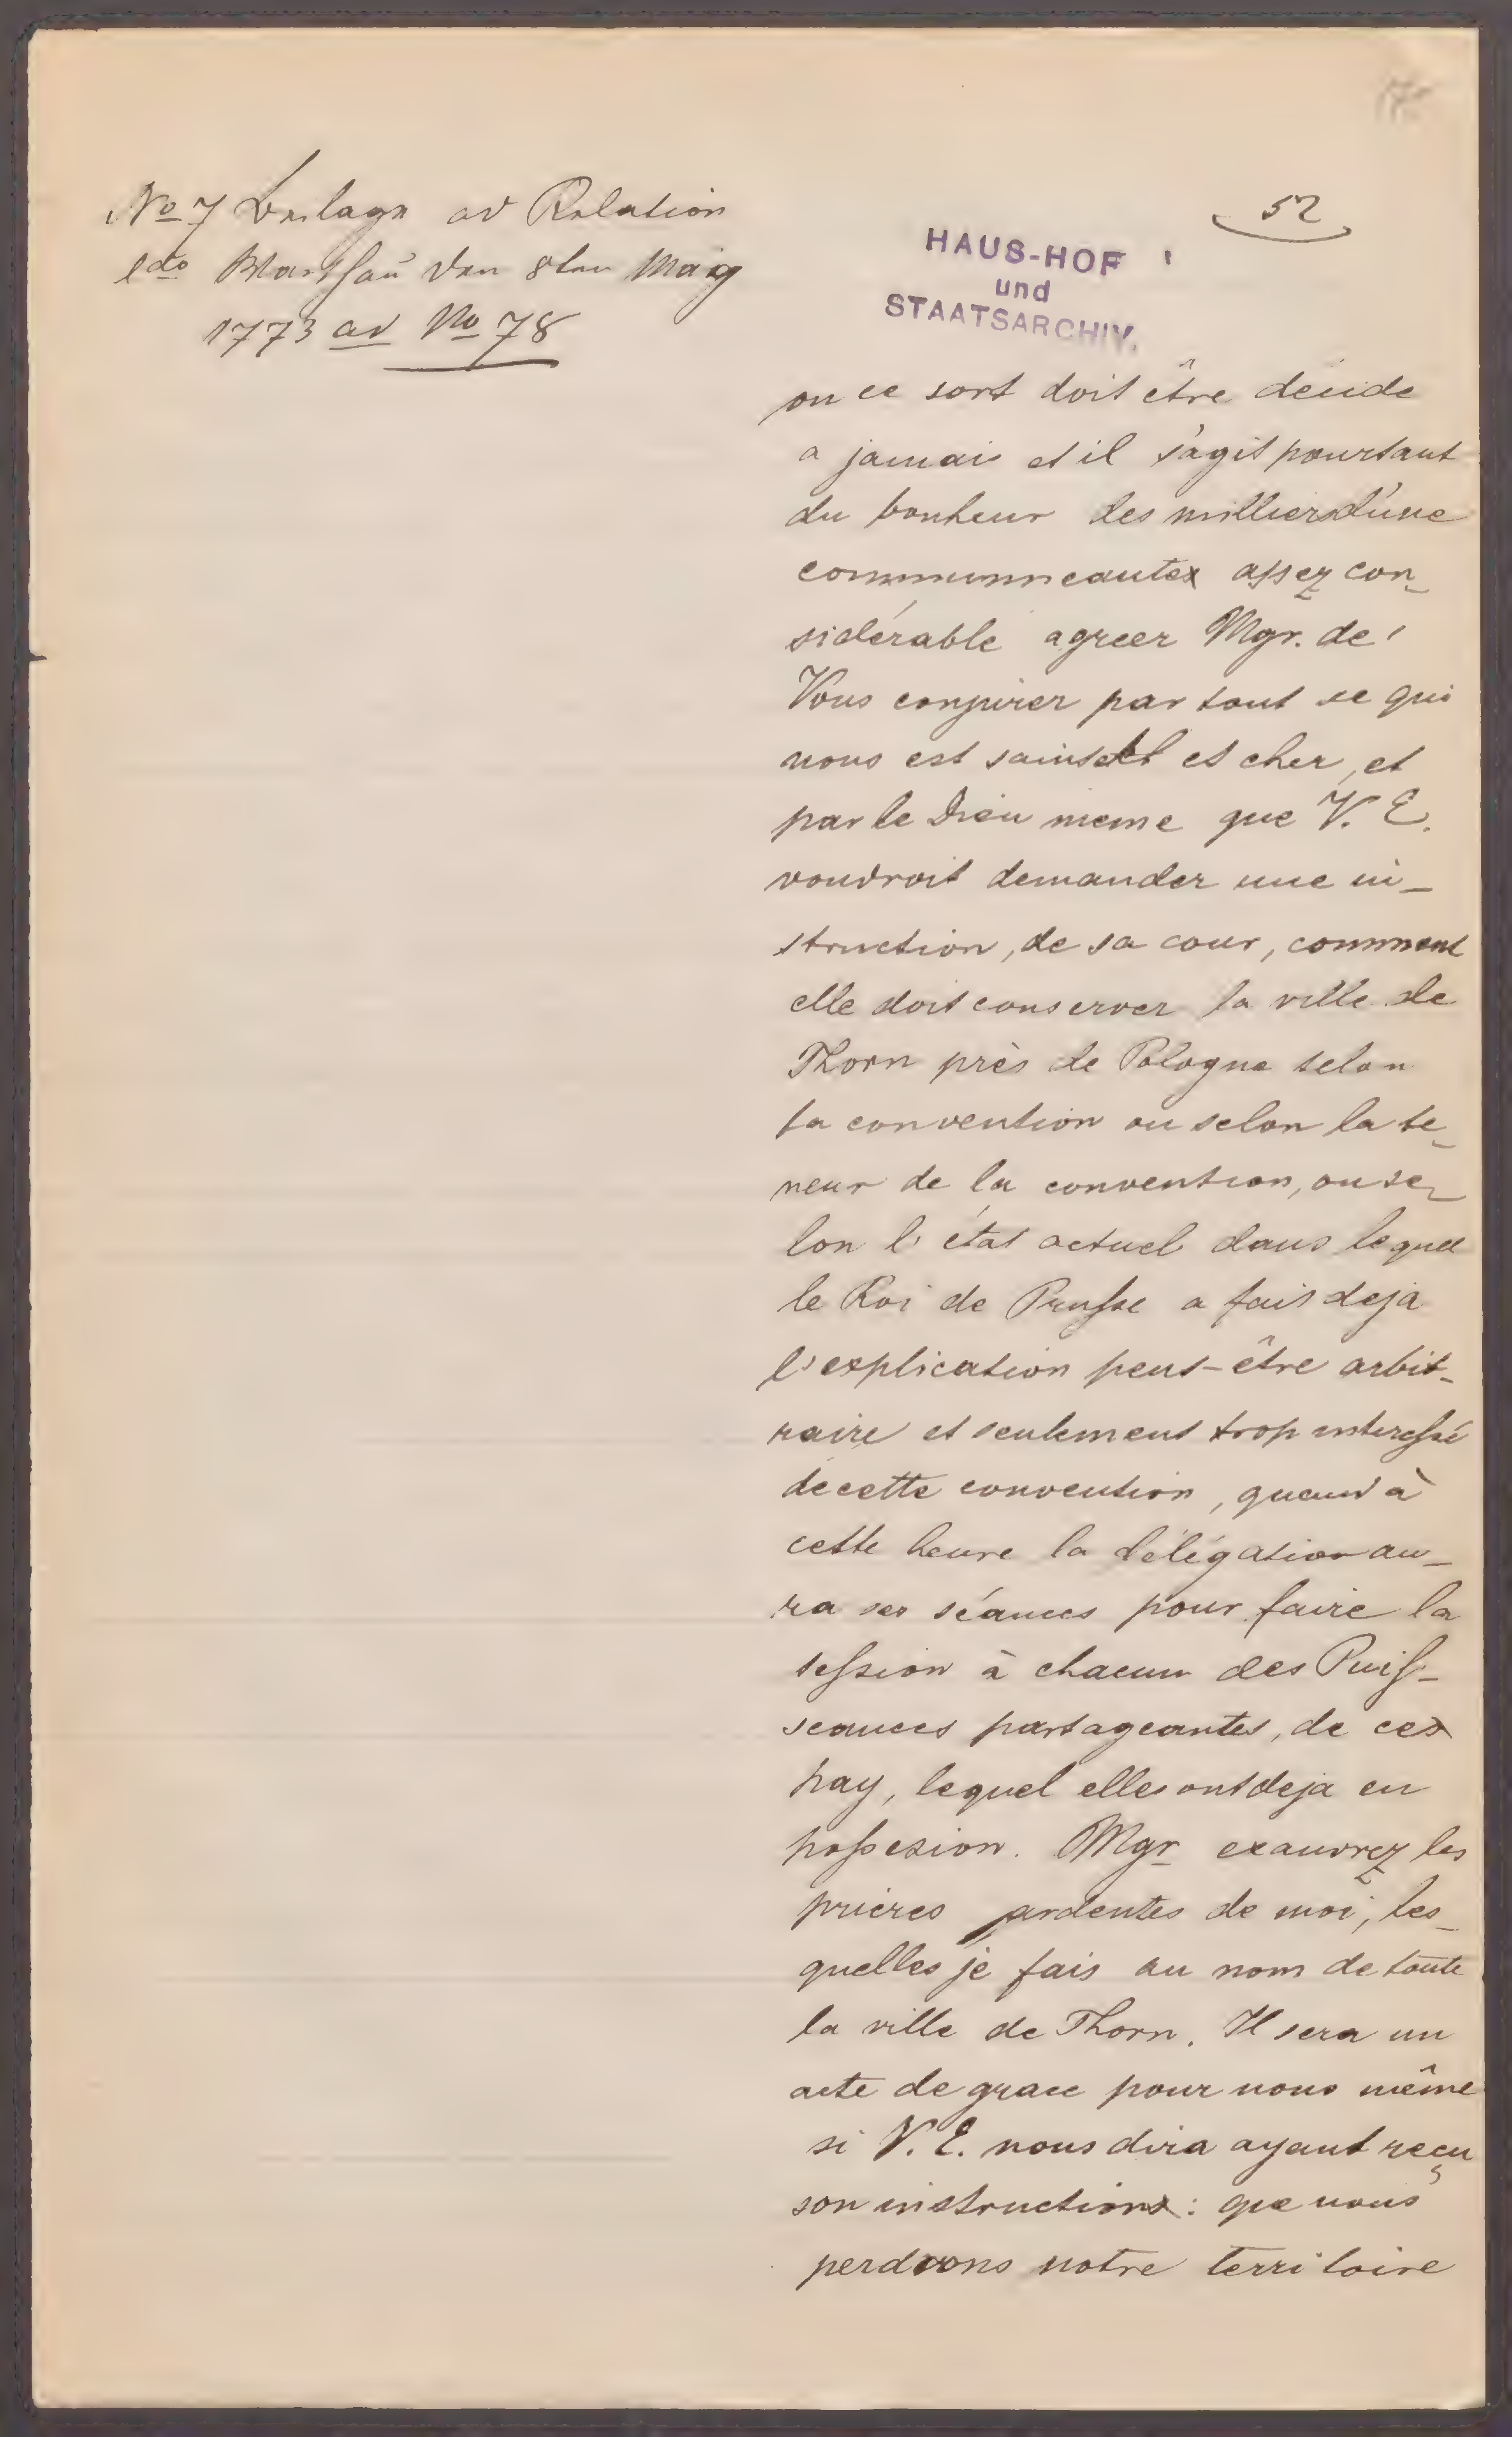 No 7 Beilage ad Relation
ddo Warschau den 8ten May
1773 ad No 78
52
HAUS-HOF
und
STAATSARCHIV.
ou ce sort doit être décide
a jamais et il s'agit pourtant
du bonheur des milliers d'une
communneautex assez con_
sidérable agreer Mgr. de
Vous conjurer par tout ce qui
nous est saint et cher, et
par le Dieu meme que V. E.
voudroit demander une in_
struction, de sa cour, comment
elle doit conserver la ville de
Thorn près de Pologne selon
la convention ou selon la te_
neur de la convention, ou se_
lon l'état actuel dans lequel
le Roi de Prusse a fait deja
l'explication peut-être arbit_
raire et seulement trop interessé
de cette convention, quand à
cette heure la délégation au_
ra ses séances pour faire la
session à chacun des Puis_
seances partageantes, de ces
pay, lequel elles ont deja en
possesion. Mgr exaucrez les
prières ardentes de moi, les_
quelles je fais au nom de toute
la ville de Thorn. Il sera un
acte de grace pour nous même
si V. E. nous dira ayant reçu
son instruction: que nous
perdrons notre territoire